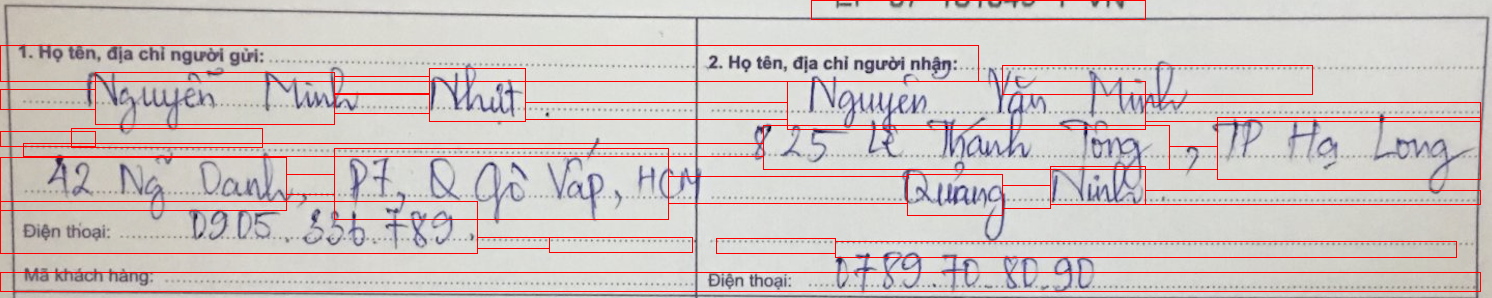 1. Họ tên, địa chỉ người gửi:
Nguyễn Minh Nhựt.
42 Ng Danh, P7, Q Gò Vấp, HCM
Điện thoại: 0905.336.789.
Mã khách hàng:
2. Họ tên, địa chỉ người nhận:
Nguyễn Văn Minh
825 Lê Thánh Tông, TP Hạ Long
Quảng Ninh.
Điện thoại: 0789.70.80.90